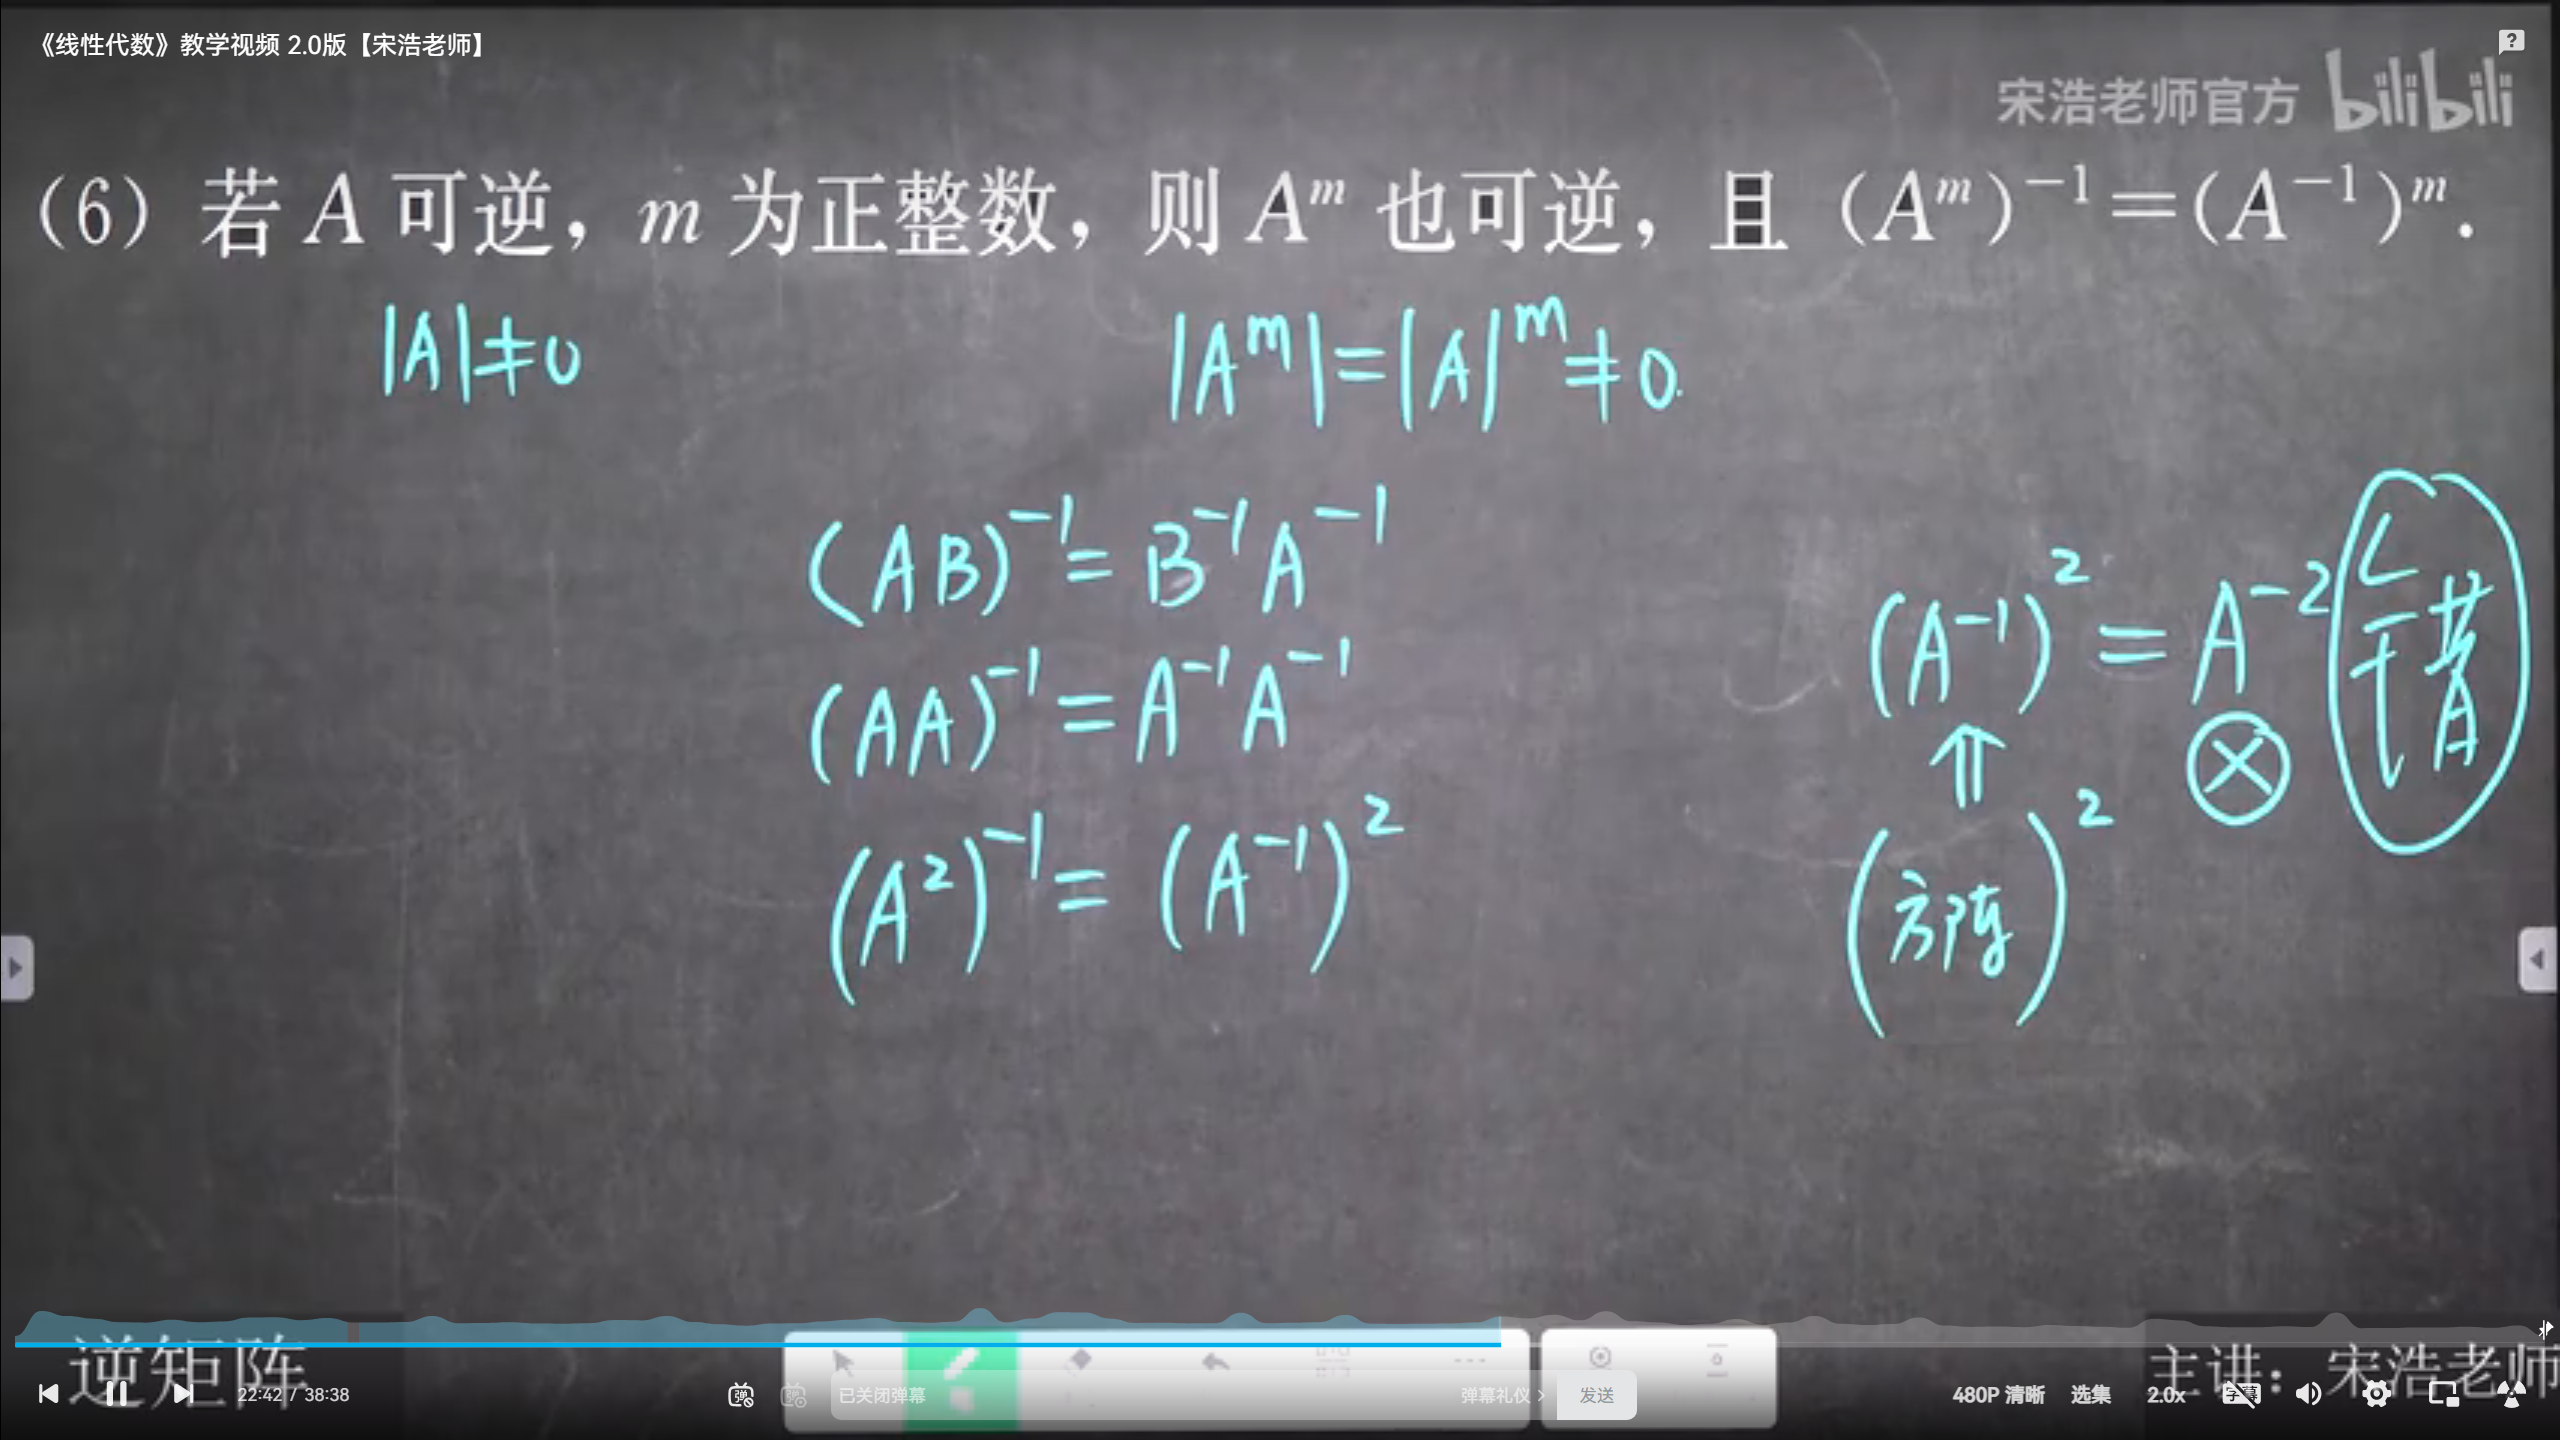 《线性代数》教学视频 2.0版【宋浩老师】
宋浩老师官方 bilibili
（6）若 A 可逆，m 为正整数，则 Aᵐ 也可逆，且（Aᵐ）⁻¹＝（A⁻¹）ᵐ．
|A|≠0
|Aᵐ|=|A|ᵐ≠0.
(AB)⁻¹= B⁻¹A⁻¹
(AA)⁻¹= A⁻¹A⁻¹
(A²)⁻¹= (A⁻¹)²
(A⁻¹)² = A⁻²
(方阵)²
逆矩阵
主讲：宋浩老师
22:42 / 38:38
已关闭弹幕
弹幕礼仪 >
发送
480P 清晰
选集
2.0x
字幕